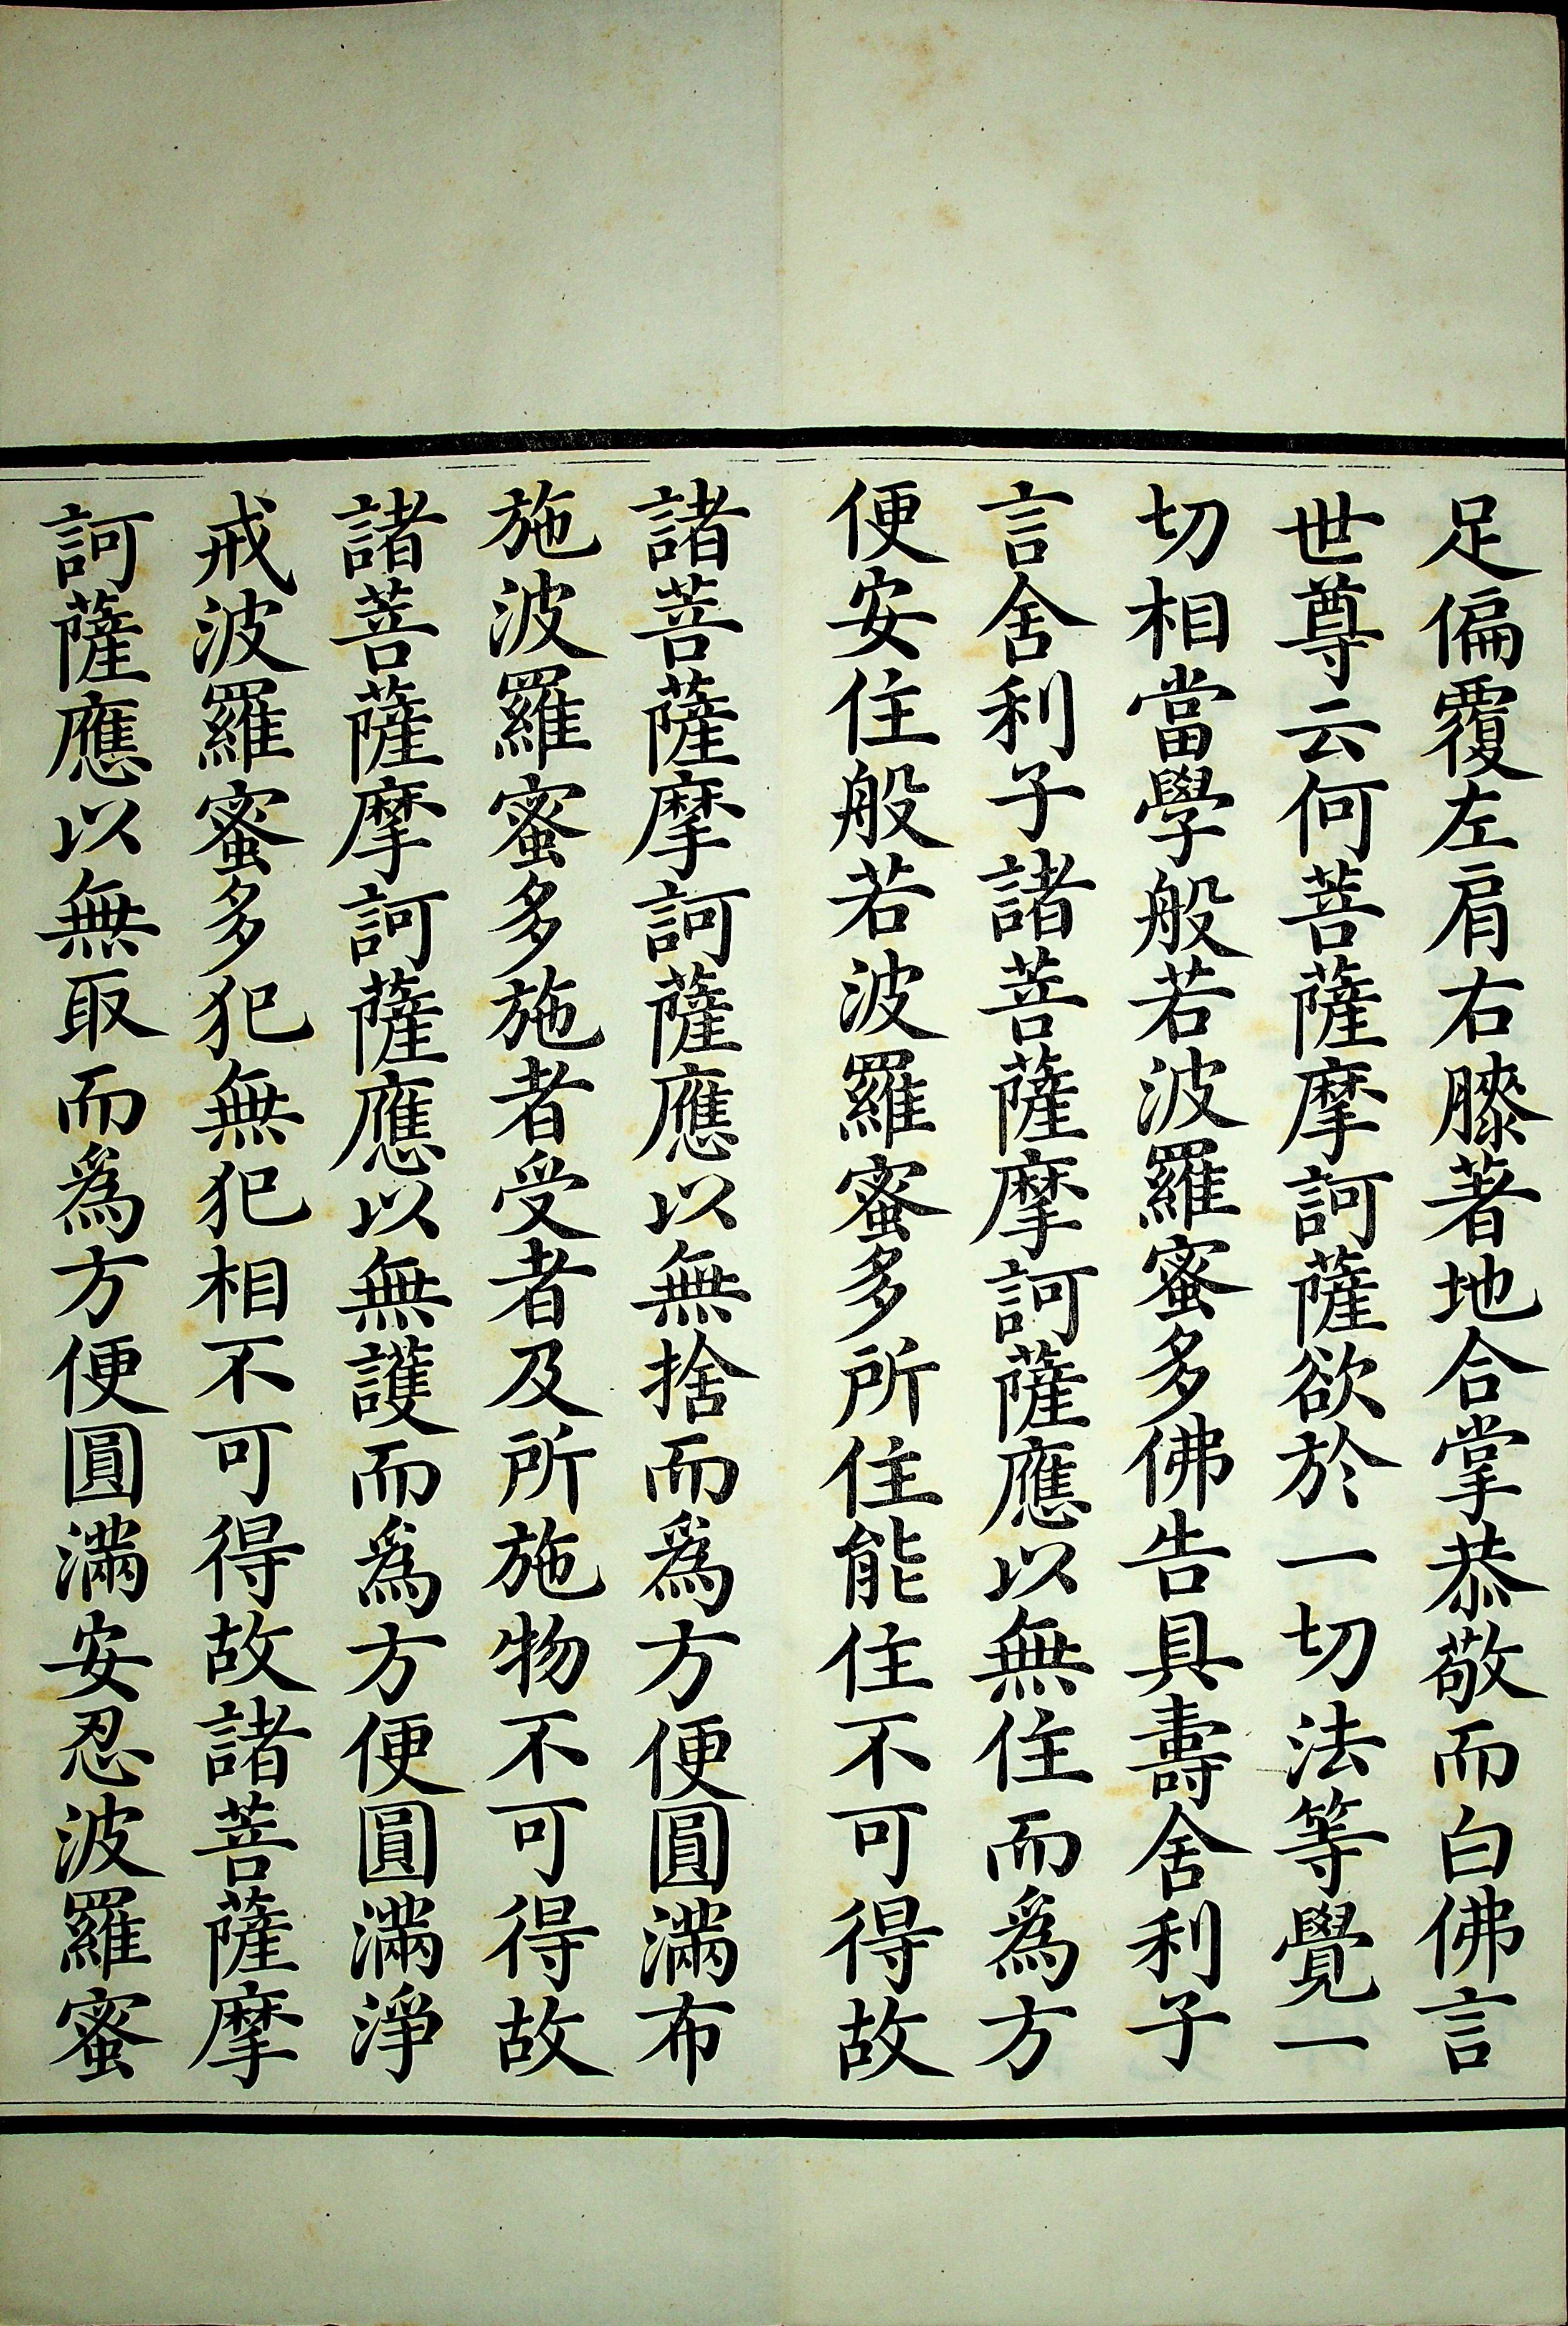 足偏覆左肩右膝著地合掌恭敬而白佛言
世尊云何菩薩摩訶薩欲於一切法等覺一
切相當學般若波羅蜜多佛告具壽舍利子
言舍利子諸菩薩摩訶薩應以無住而爲方
便安住般若波羅蜜多所住能住不可得故
諸菩薩摩訶薩應以無捨而爲方便圓滿布
施波羅蜜多施者受者及所施物不可得故
諸菩薩摩訶薩應以無護而爲方便圓滿淨
戒波羅蜜多犯無犯相不可得故諸菩薩摩
訶薩應以無取而爲方便圓滿安忍波羅蜜